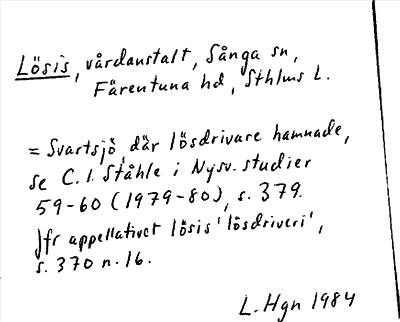 Lösis, vårdanstalt, Sånga sn,
Färentuna hd, Sthlms L.
= Svartsjö, där lösdrivare hamnade,
se C. I. Ståhle i Nysv. studier
59-60 (1979-80), s. 379.
Jfr appellativet lösis 'lösdriveri',
s. 370 n. 16.
L. Hgn 1984